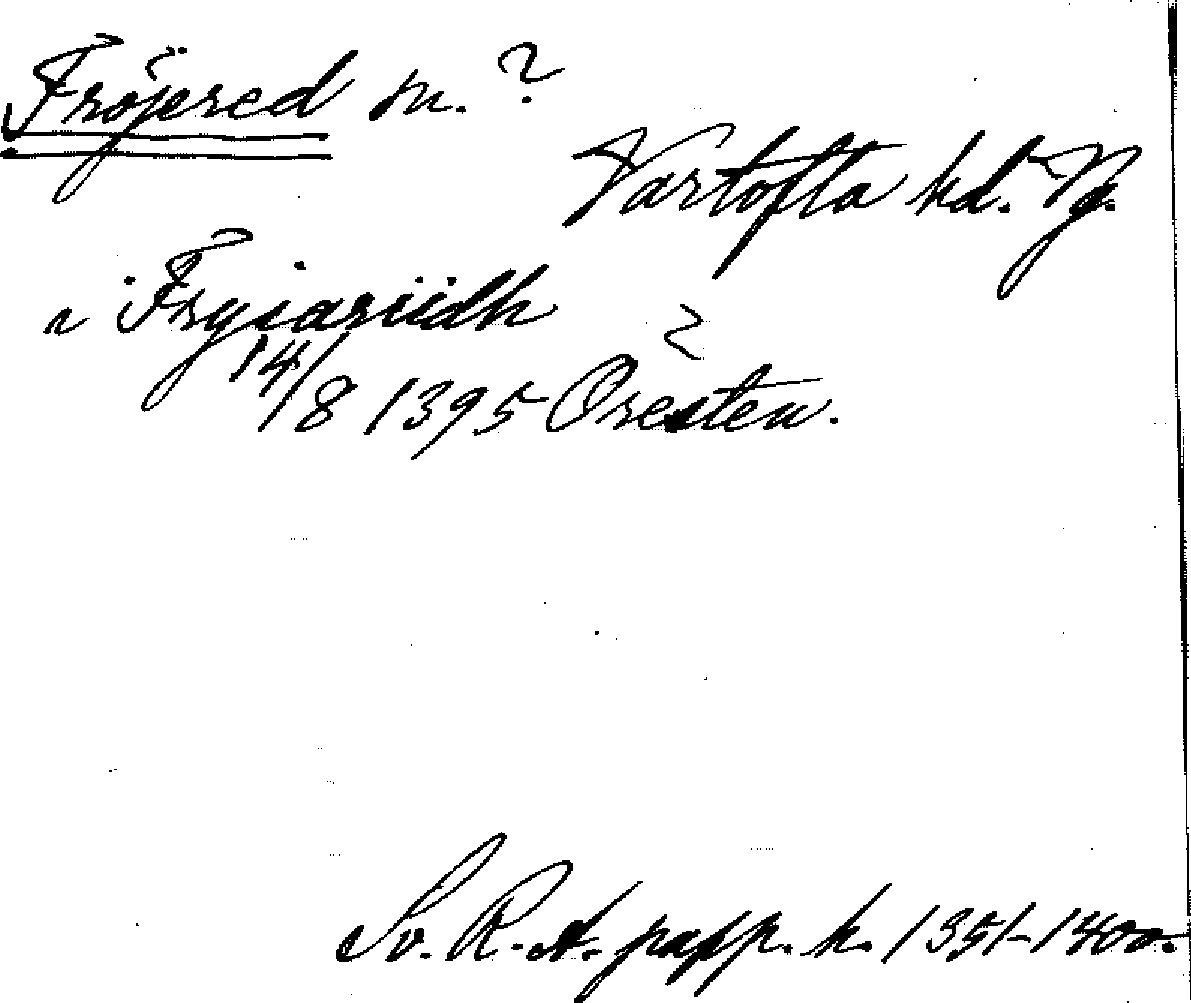 Fröjered sn. ?
Vartofta hd. Vg.
i Fryiariidh
14/8 1395 Öresten.
Sv. R. A. papp. h. 1351-1400.